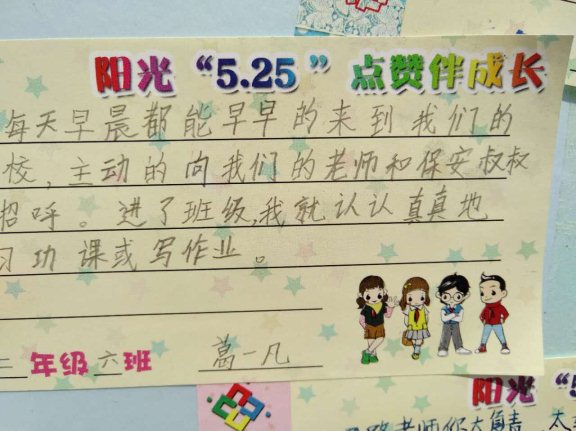 阳光“5.25”点赞伴成长
每天早晨都能早早的来到我们的
校，主动的向我们的老师和保安叔叔
招呼。进了班级，我就认认真真地
习功课或写作业。
二年级六班 葛一凡
阳光“5
老师你大